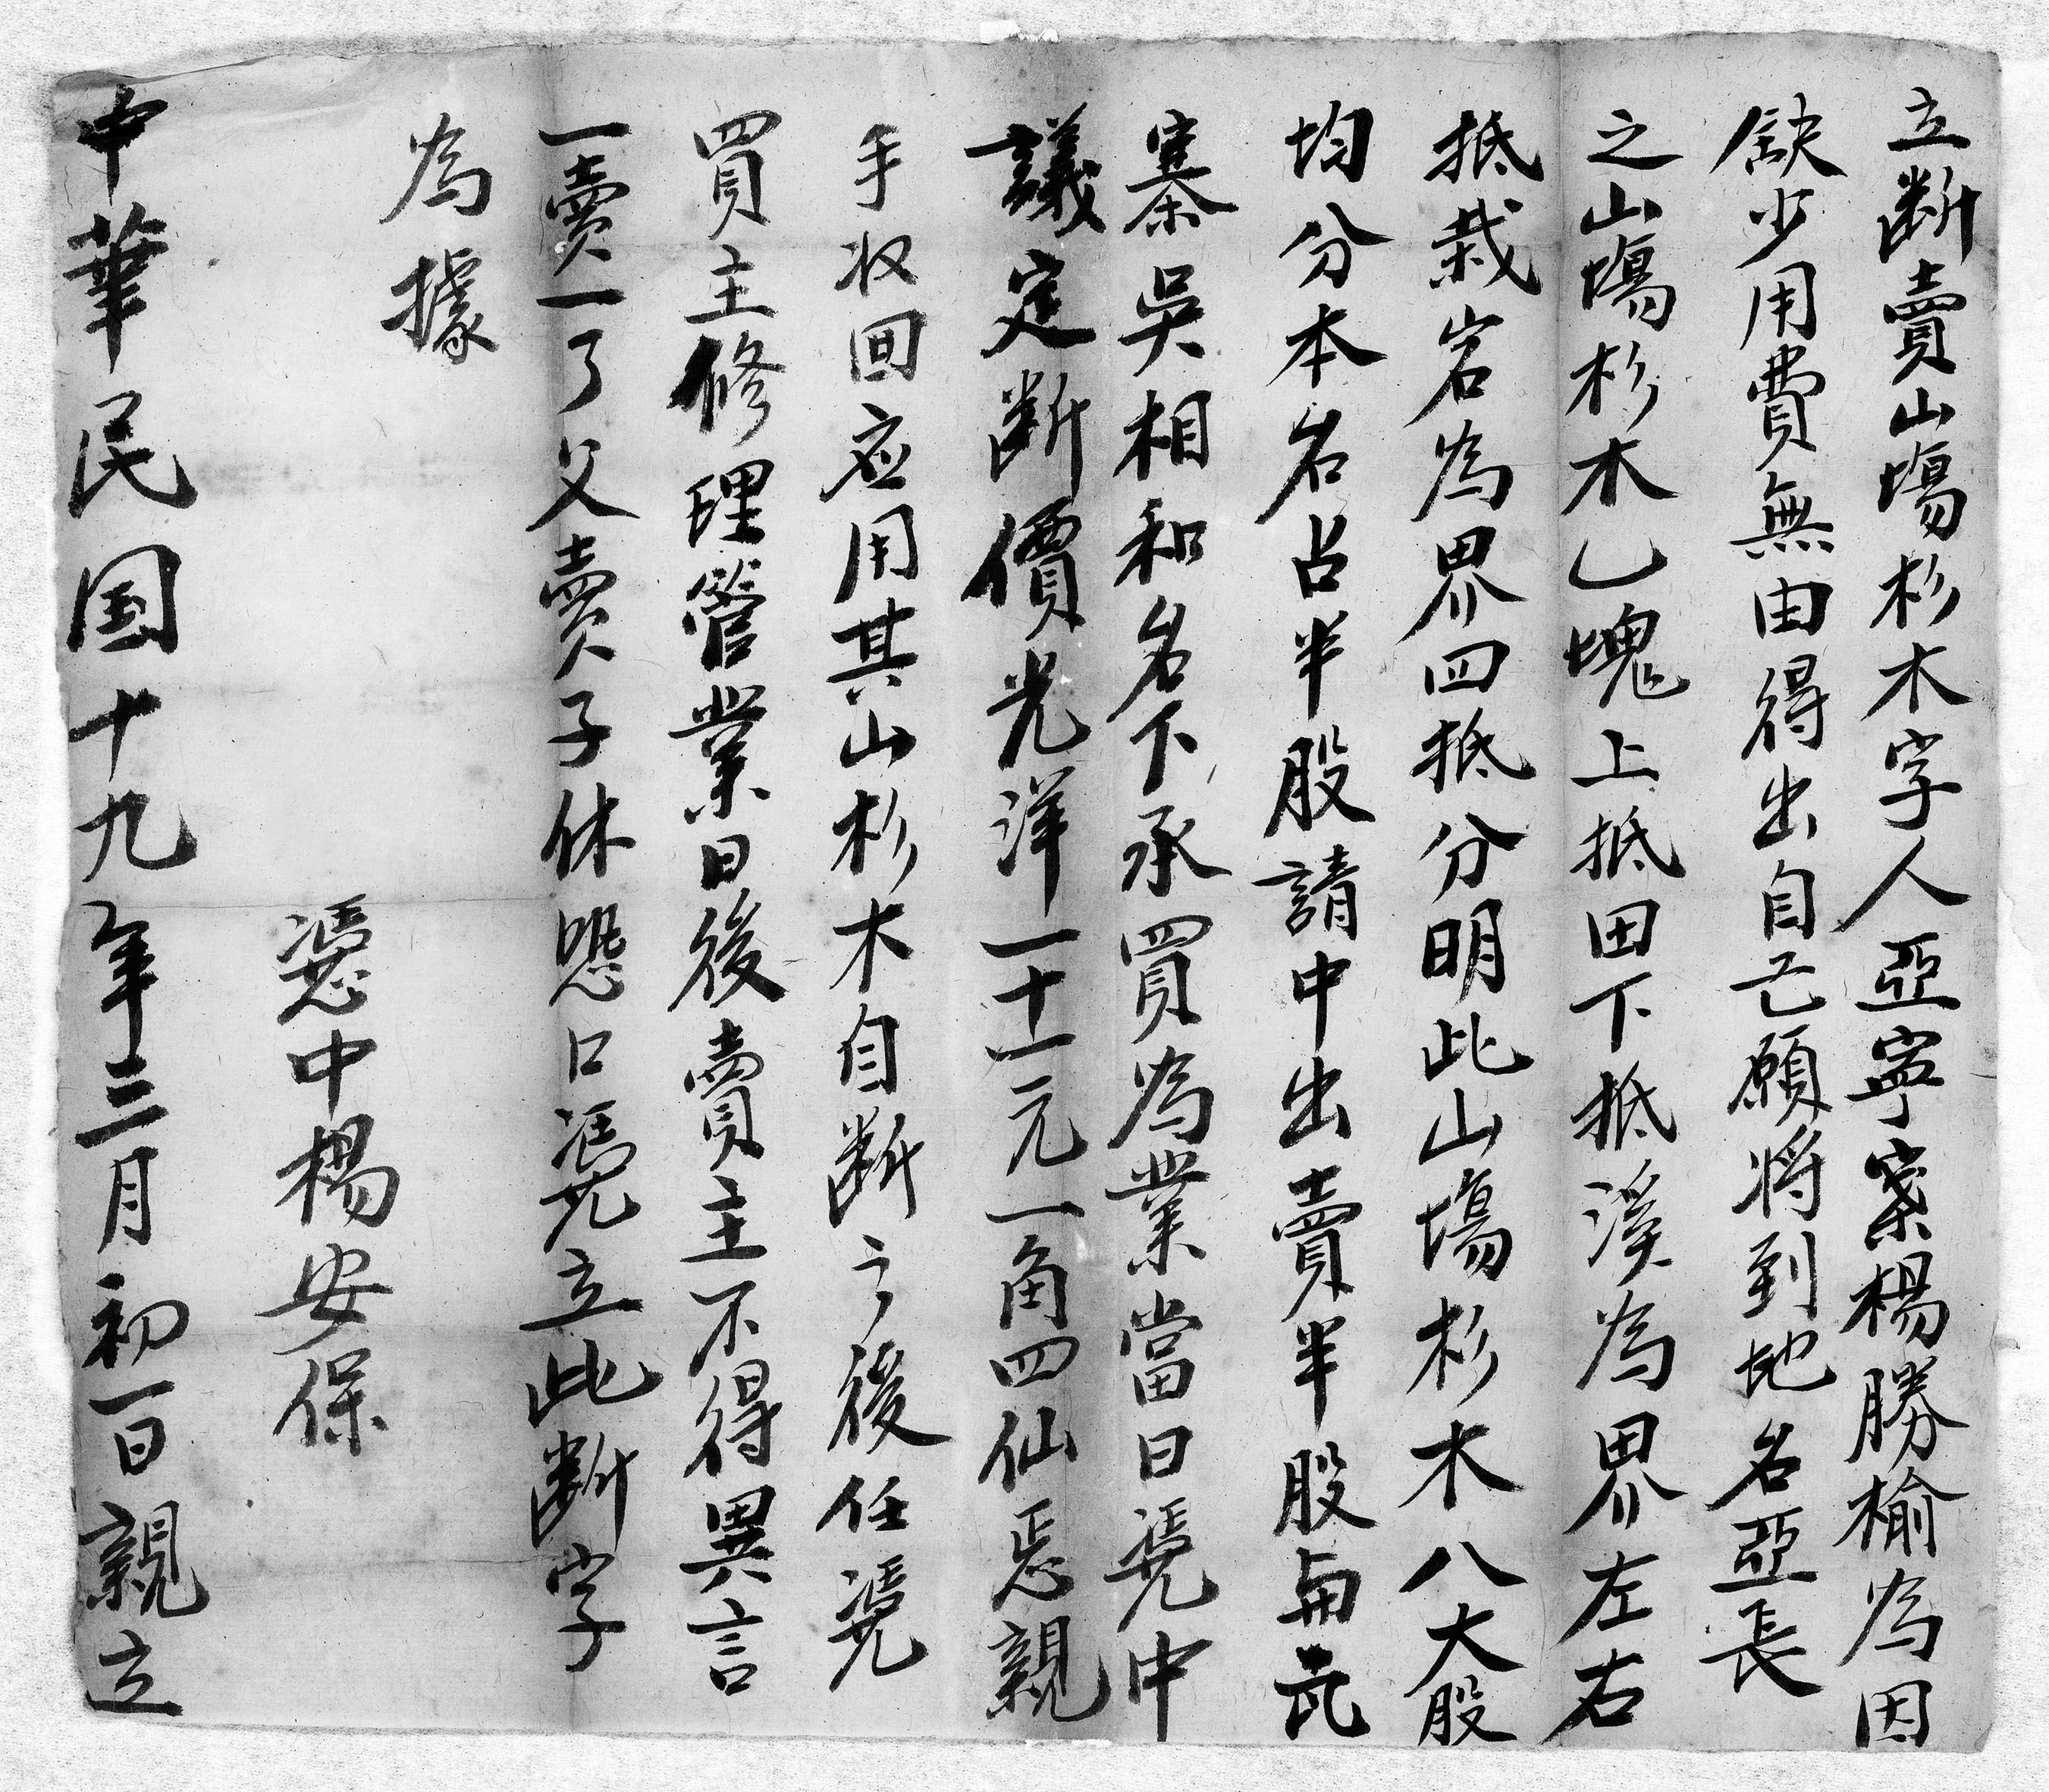 立断賣山塲杉木字人亞寧寨楊勝榆為因
缺少用費無由得出自己願将到地名亞長
之山塲杉木乙塊上抵田下抵溪為界左右
抵栽岩為界四抵分明此山塲杉木八大股
均分本名占半股請中出賣半股與瓦
寨吳相和名下承買為業當日凴中
議定断價光洋一十一元一角四仙恴親
手收回应用其山杉木自断之後任凴
買主修理管業日後賣主不得異言
一賣一了父賣子休恐口凴立此断字
為據
憑中楊安保
中華民国十九年三月初一日親立